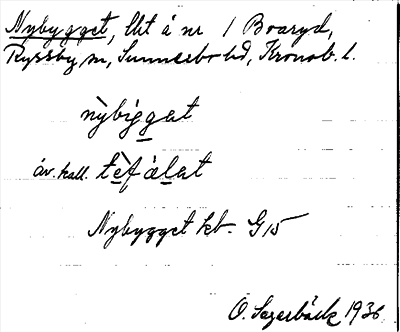 Nybygget, lht å nr 1 Boaryd,
Ryssby sn, Sunnerbo hd, Kronob. l.
nỳbiggat
äv. kall. tèfálat
Nybygget kb. G15
O. Sagerbäck 1936